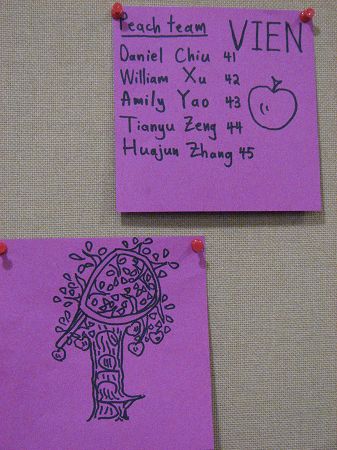 Peach team
VIEN
Daniel Chiu 41
William Xu 42
Amily Yao 43
Tianyu Zeng 44
Huajun Zhang 45